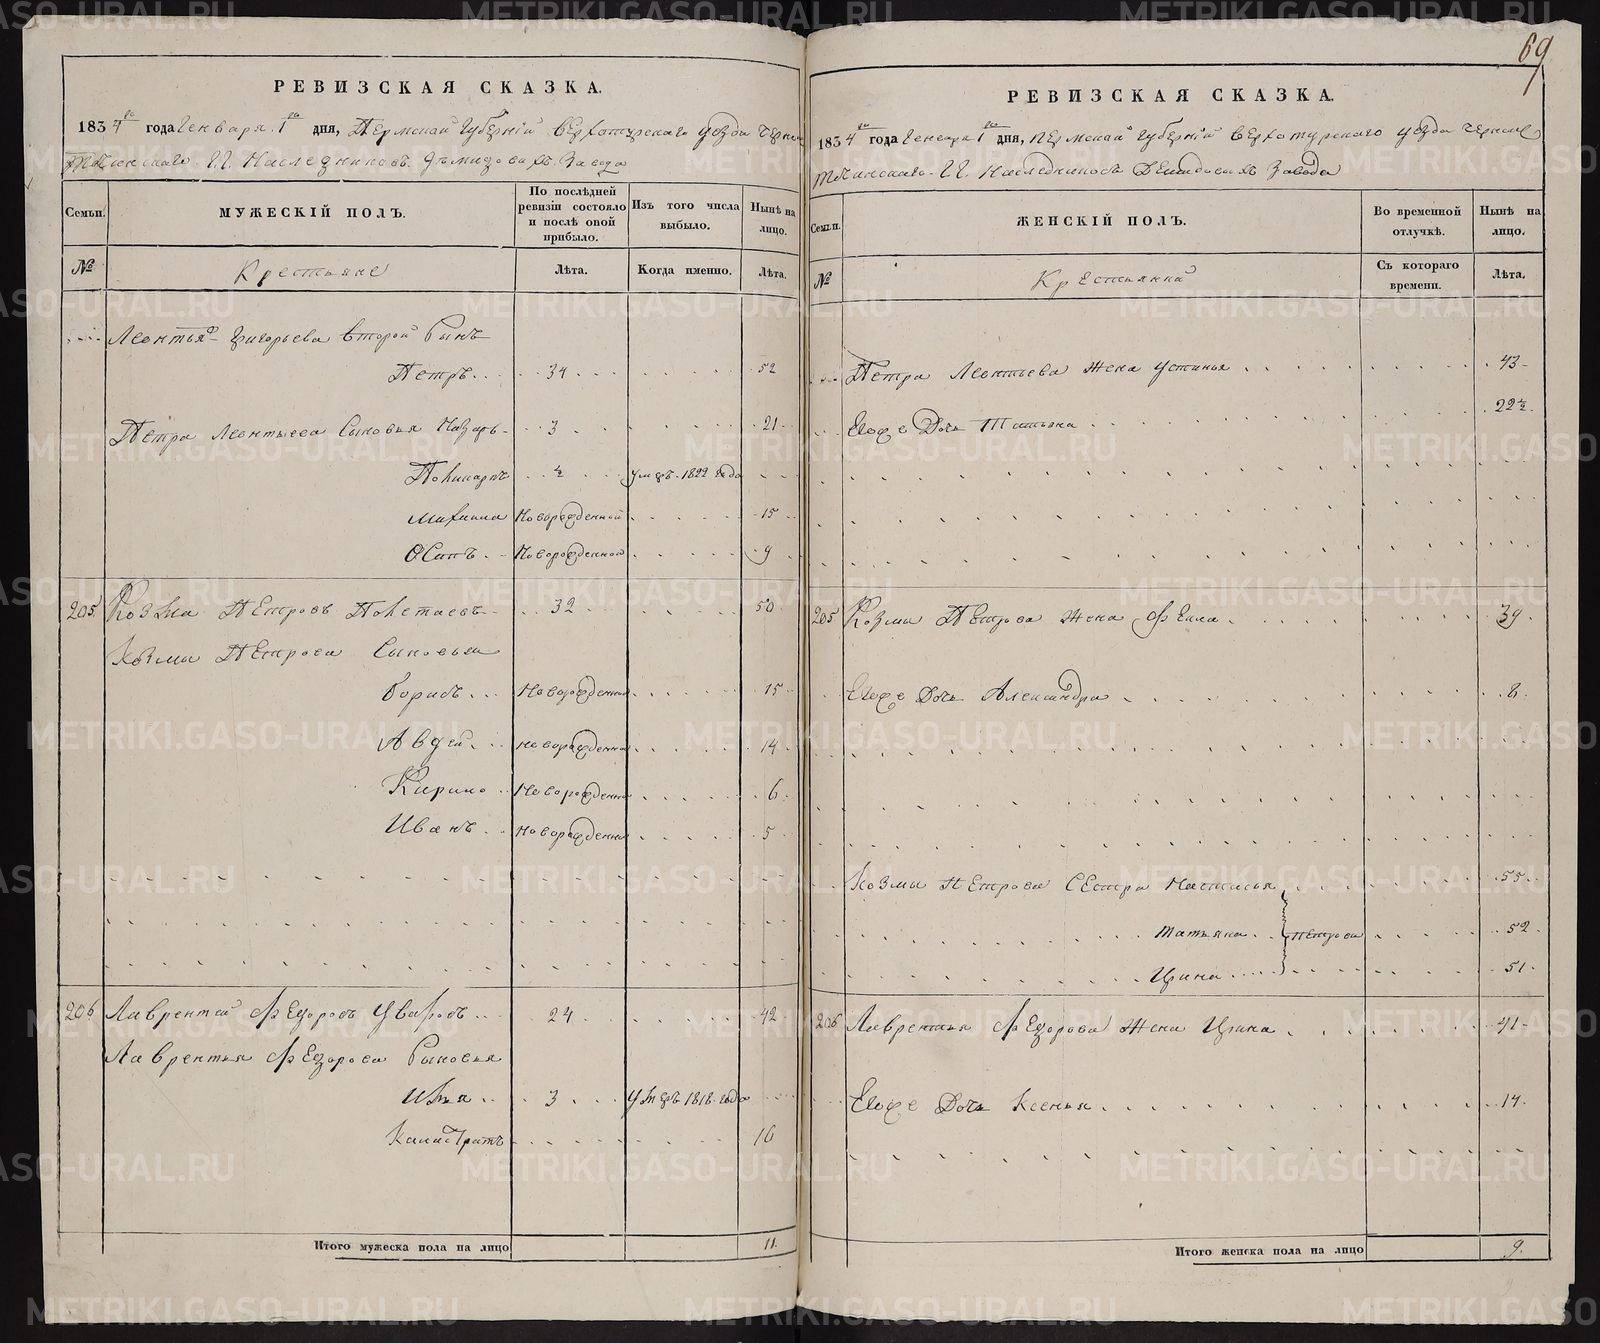 РЕВИЗСКАЯ СКАЗКА.
1834го года Генваря 1го дня, Пермскай Губерніи Верхотурскаго уезда Черно
Источинскаго Г.Г. Наследниковъ Демидовыхъ Завода
Семьи.
МУЖЕСКІЙ ПОЛЪ.
По послѣдней ревизіи состояло и послѣ оной прибыло.
Изъ того числа выбыло.
Нынѣ на лицо.
№
Крестьяне
Лѣта.
Когда именно.
Лѣта.
Леонтья Григорьева второй Сынъ
Петръ 34 52
Петра Леонтьева Сыновья Назаръ 3 21
½ умеръ 1822 года
Михаила Новорожденной 15
Осипъ Новорожденной 9
205 Козма Петровъ 32 50
Козмы Петрова Сыновья
Борисъ Новорожденны 15
Авдей Новорожденны 14
Кирило Новорожденны 6
Иванъ Новорожденны 5
206 Лаврентей Федоровъ Уваровъ 24 42
Лаврентья Федорова Сыновья
Илья 3 Умеръ 1818 года
Калистратъ 16
Итого мужеска пола на лицо 11.
69
РЕВИЗСКАЯ СКАЗКА.
1834го года Генваря 1го дня, Пермскай Губерніи Верхотурскаго уезда Черно
Источинскаго Г.Г. Наследниковъ Демидовыхъ Завода
Семьи.
ЖЕНСКІЙ ПОЛЪ.
Во временной отлучкѣ.
Нынѣ на лицо.
№
Крестьянки
Съ котораго времени.
Лѣта.
Петра Леонтьева жена Устинья 43
Егоже Дочь Татьяна 22½
205 Козмы Петрова жена Фекла 39
Егоже Дочь Александра 8
Козмы Петрова Сестра Настасья 55
Татьяна Петровы 52
Ирина 51
206 Лаврентья Федорова жена Ирина 41
Егоже Дочь Ксенья 14
Итого женска пола на лицо 9.
METRIKI.GASO-URAL.RU